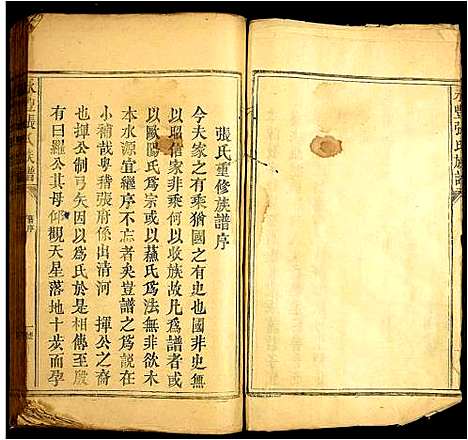 永豐張氏族譜
張氏重修族譜序
今夫家之有乘猶國之有史也國非史無
以昭信家非乘何以收族故凡為譜者或
以歐陽氏為宗或以蘓氏為法無非欲木
本水源宜經序不忘者矣豈譜之為說在
小補哉粤稽張府係出清河 揮公之裔
也揮公制弓矢因以為氏於是相傳至殷
有曰羅公其母仰觀天星落地十步而孕
永豐張氏族譜